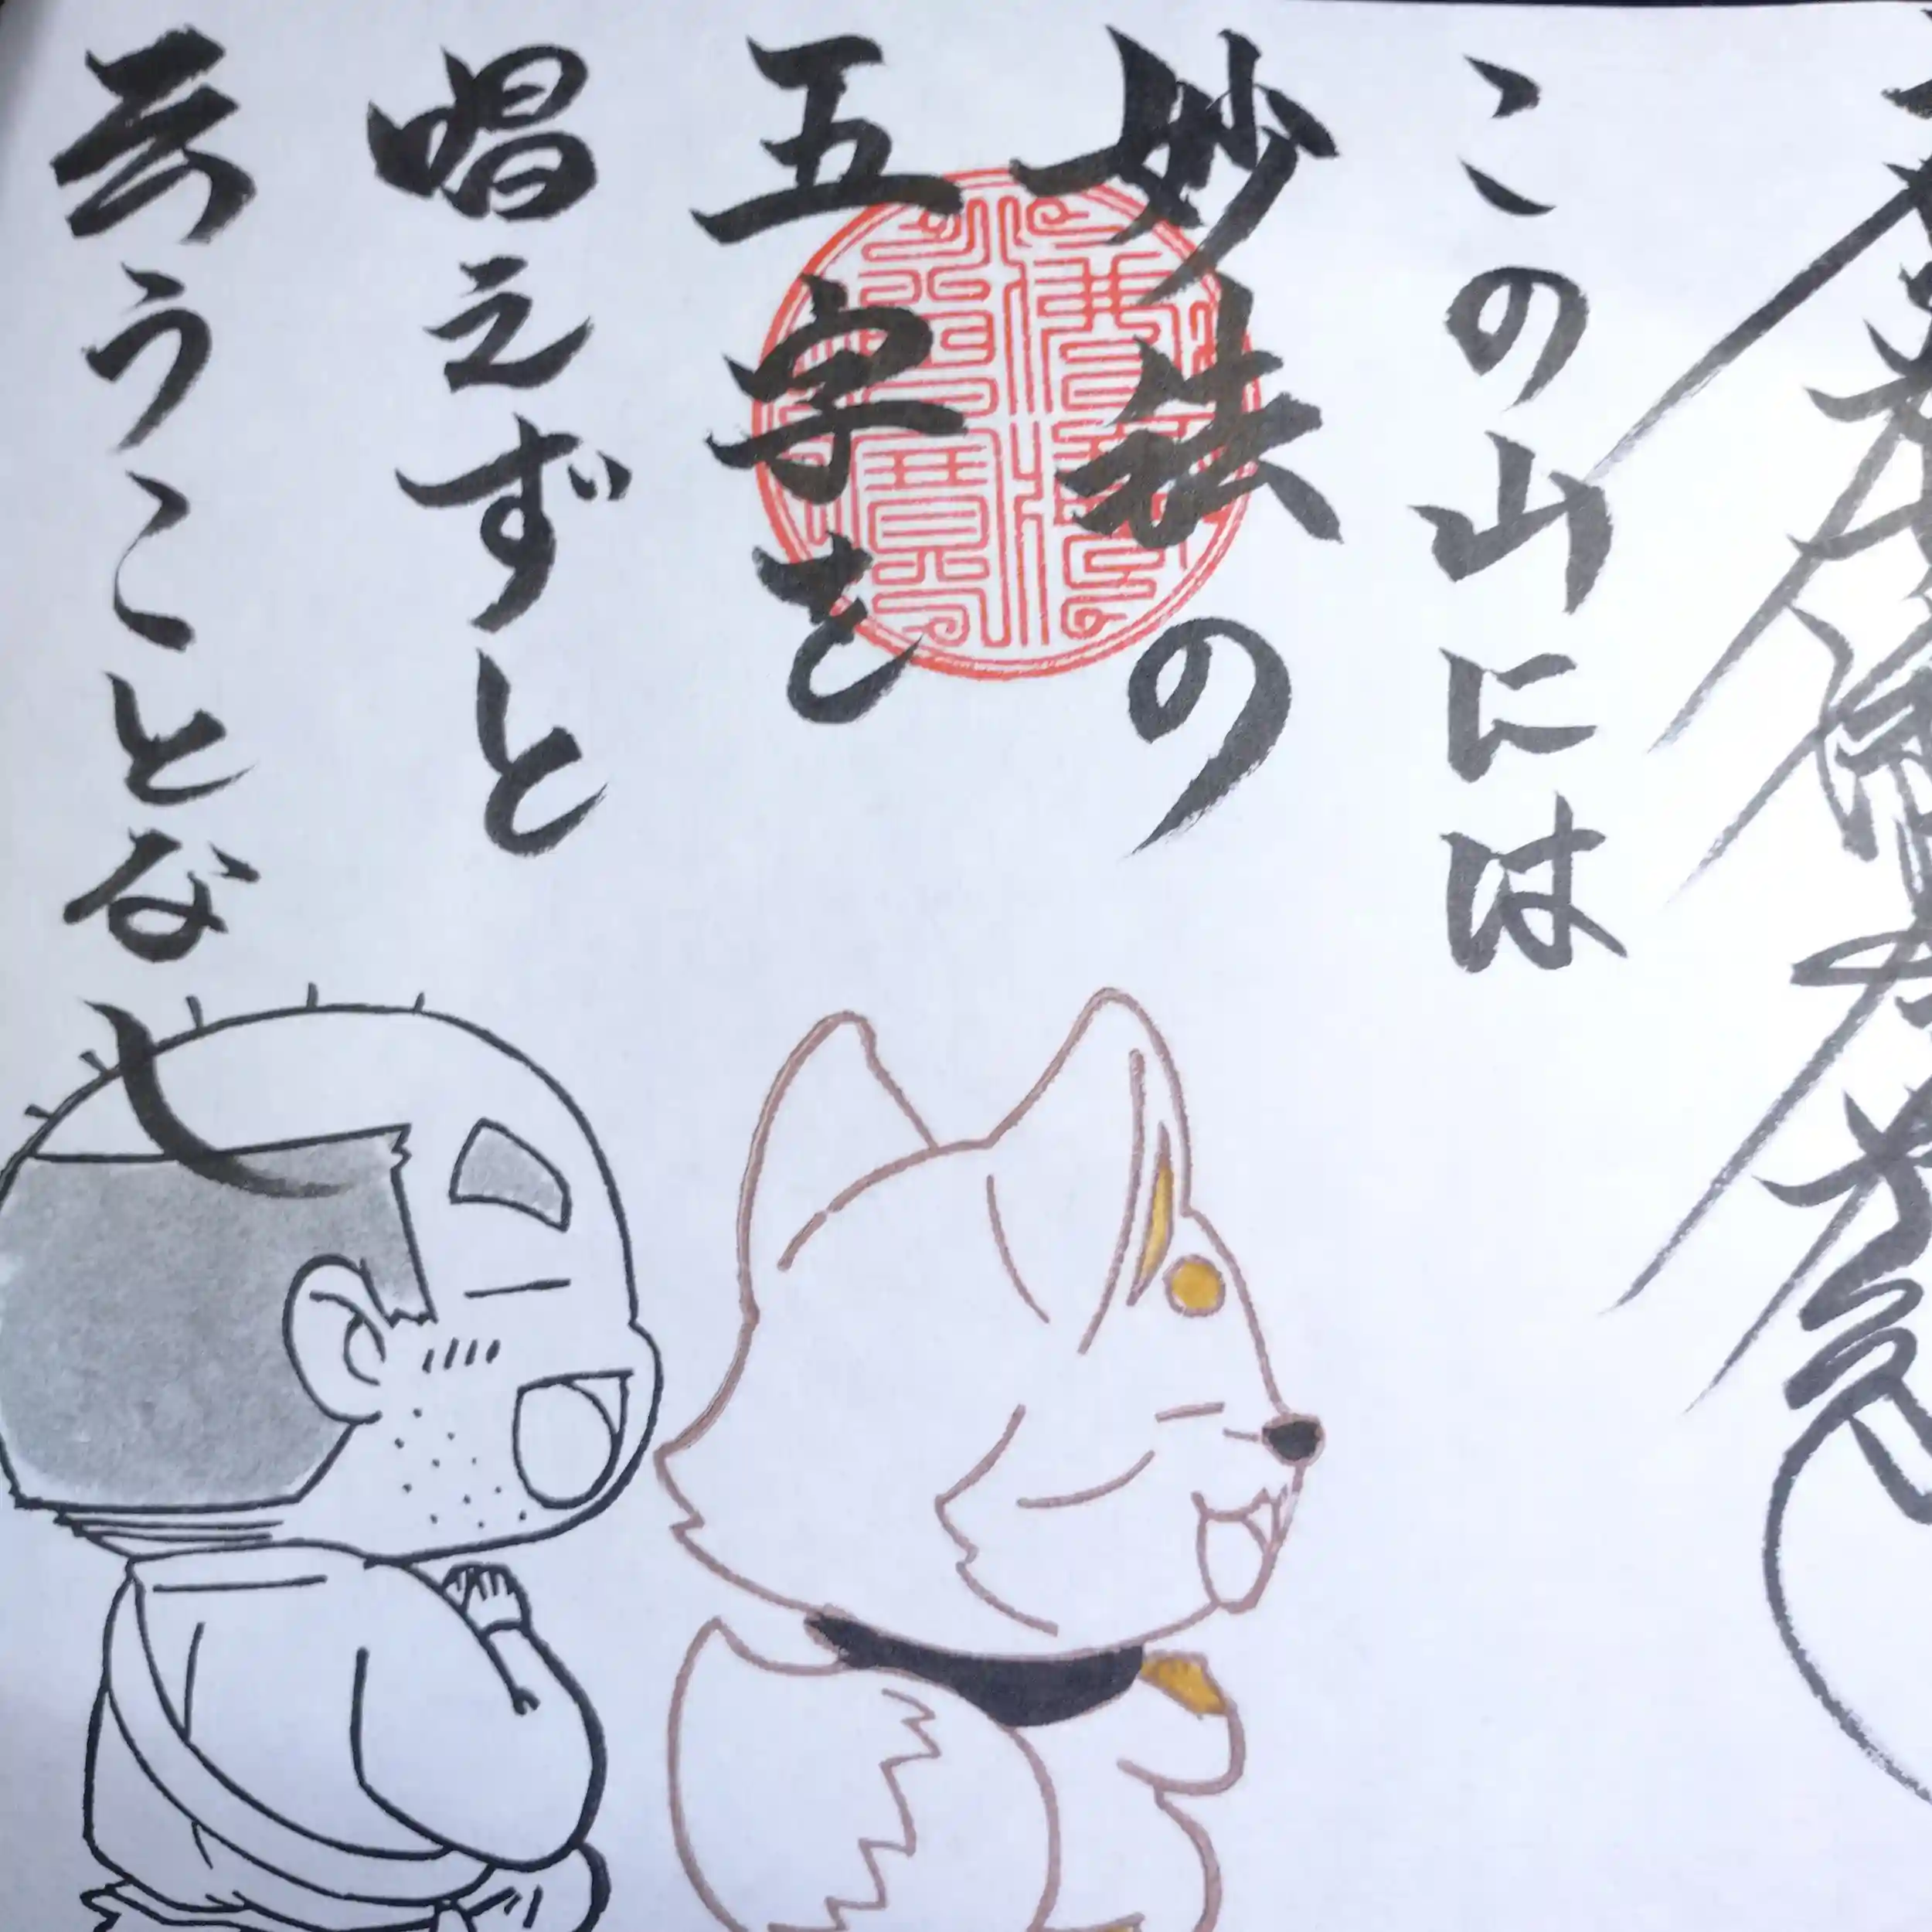 この山には
妙法の
五字を
唱えずと
云うことなし